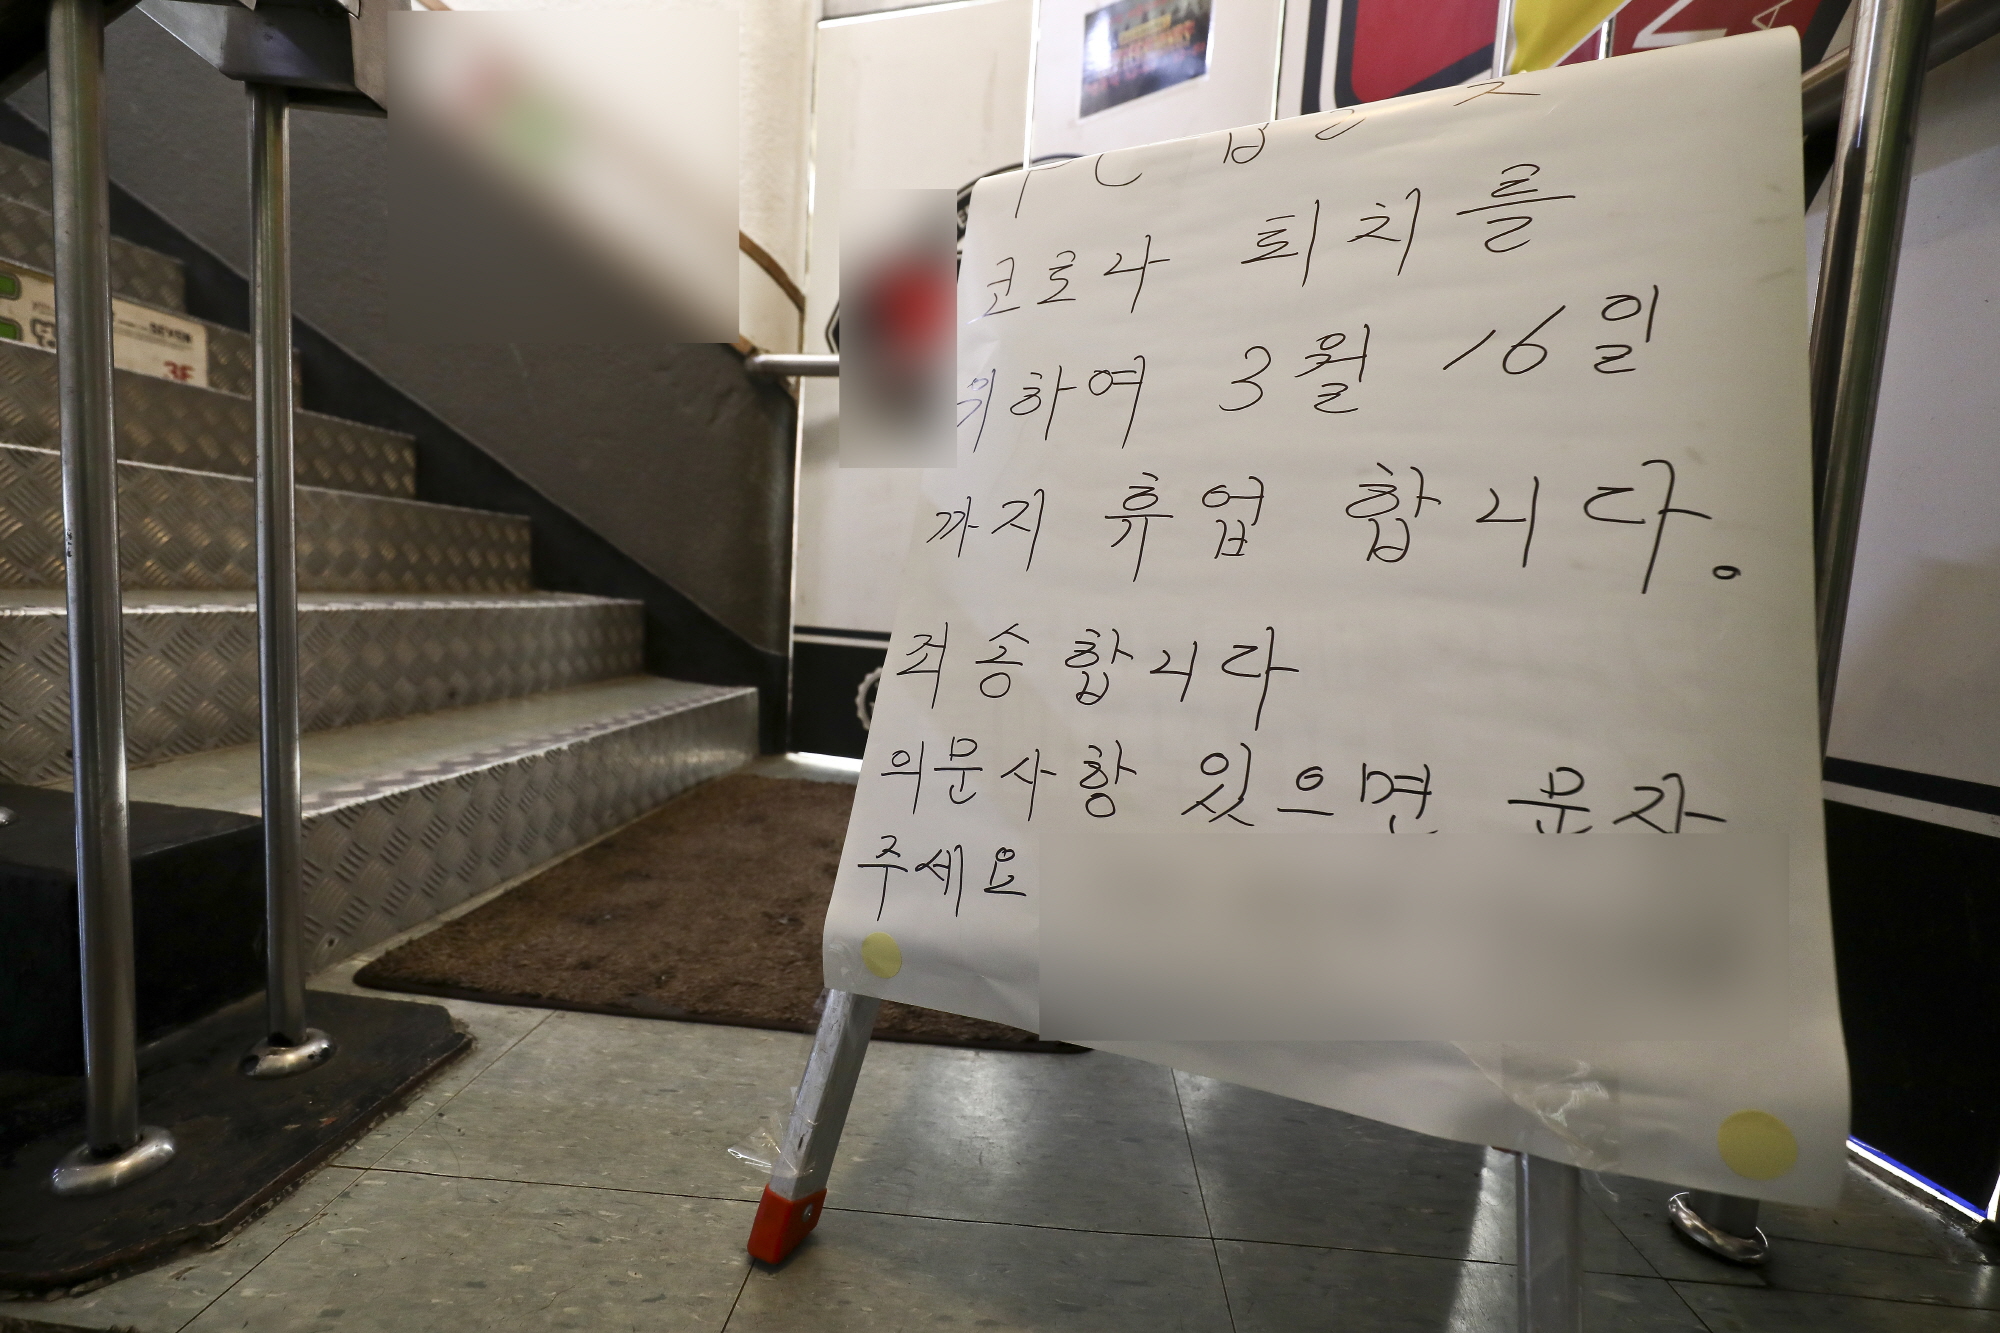 코로나 퇴치를
위하여 3월 16일
까지 휴업 합니다.
죄송합니다
의문사항 있으면 문자
주세요
SEVEN